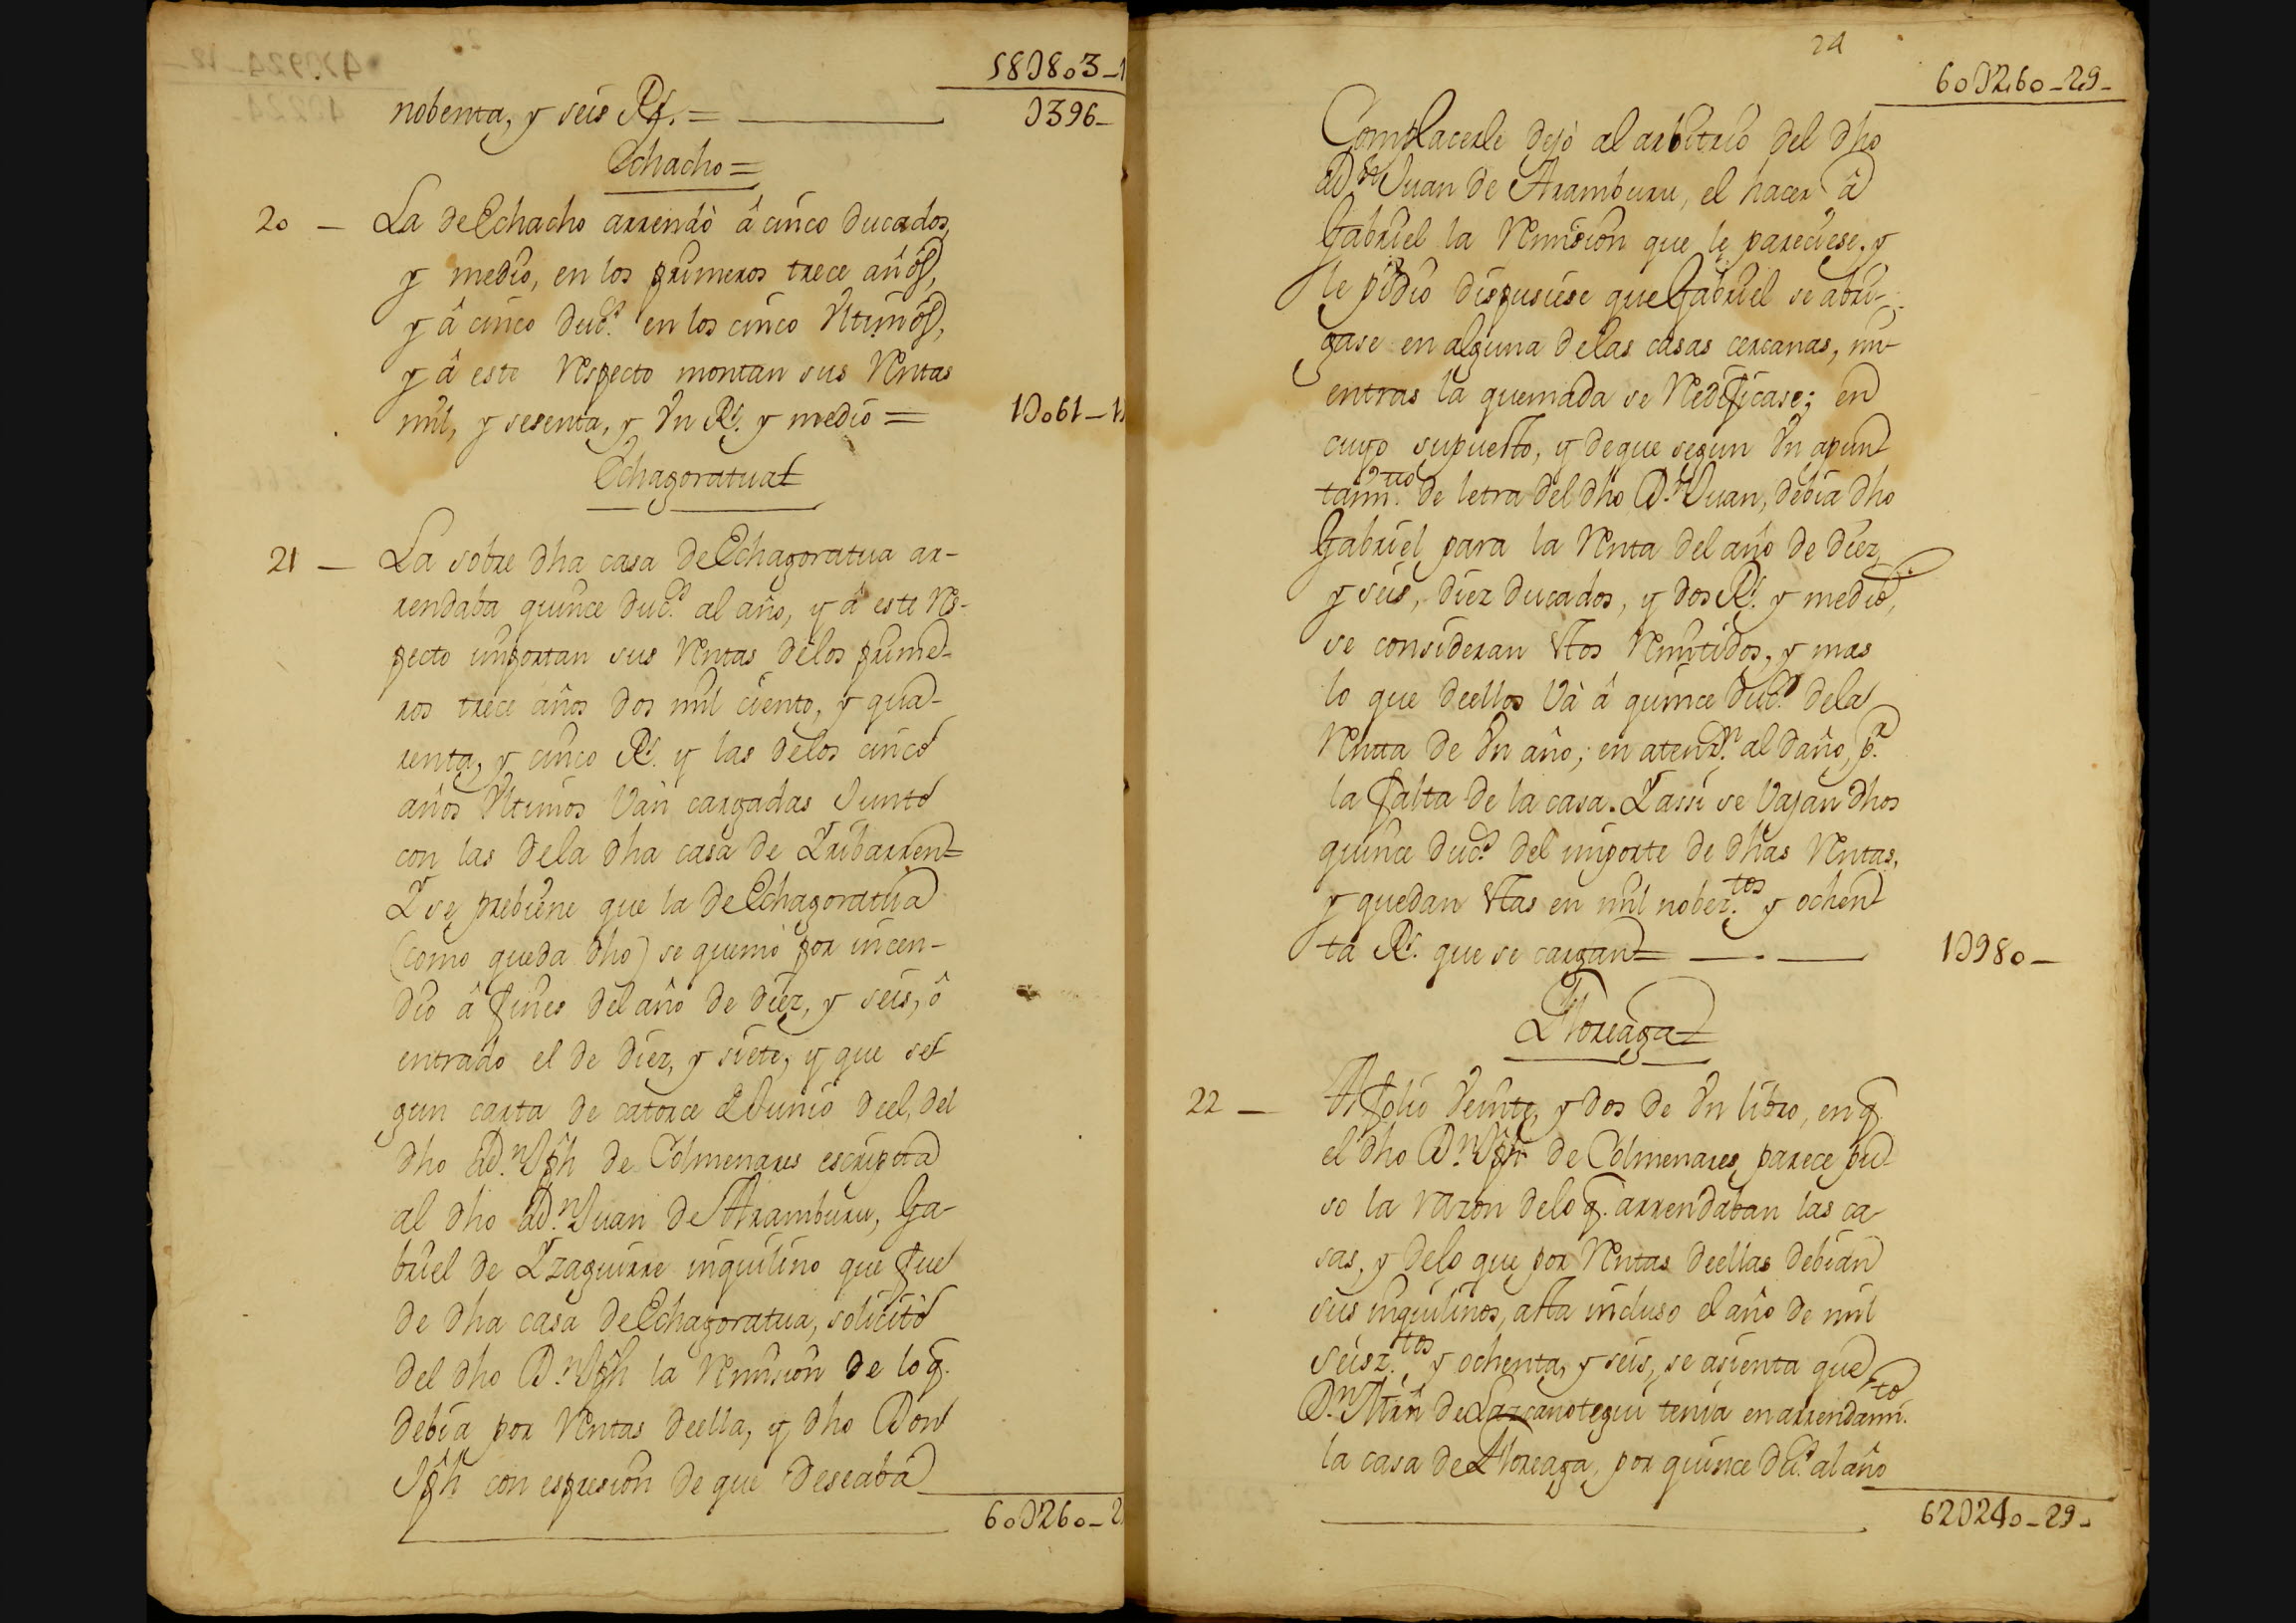 58U803-1
nobenta, y seis Rs. =
U396-
Echacho =
20 - La de Echacho arrendò â cinco ducados,
y medio, en los primeros trece años,
y â cinco ducs. en los cinco Vltimos,
y â este respecto montan sus rentas
mil, y sesenta, y Vn Rs. y medio =
1U061-1
Echagoratua=
21 - La sobre dha casa de Echagoratua ar-
rendaba quince ducs. al año, y â este res-
pecto importan sus rentas delos prime-
ros trece años dos mil ciento, y qua-
renta, y cinco Rs. y las delos cinco
años Vltimos Vàn cargadas Junto
con las dela dha casa de Yribarren=
Y se prebiene que la de Echagoratua
(como queda dho) se quemò por incen-
dio â fines del año de diez, y seis, ô
entrado el de diez, y siete, y que se
gun carta de catorce de Junio deel, del
dho Dn. Jph de Colmenares escripta
al dho Dn. Juan de Aramburu, Ga-
briel de Yzaguirre inquilino que fue
de dha casa de Echagoratua, solicitò
del dho Dn. Jph la remision de lo q.
debia por rentas deella, y dho Don
Jph con espresion de que deseaba
60U260-2
24
60U260-29-
Complacerle dejò al arbitrio del dho
Dn. Juan de Aramburu, el hacer â
Gabriel la remision que le pareciese, y
le pidiò dispusiese que Gabriel se abri-
gase en alguna delas casas cercanas, mi-
entras la quemada se redificase; en
cuyo supuesto, y deque segun Vn apun
tamto. de letra del dho Dn. Juan, debia dho
Gabriel para la renta del año de diez,
y seis, diez ducados, y dos Rs. y medio,
se consideran estos remitidos, y mas
lo que deellos Và â quince ducs. dela
renta de Vn año; en atenzn. al daño, pr.
la falta de la casa. Y assi se Vajan dhos
quince ducs. del importe de dhas rentas,
y quedan estas en mil nobeztos. y ochen
ta Rs. que se cargan=
1U980-
Yttoreaga=
22 - Al folio Veinte, y dos de Vn libro, en q.
el dho Dn. Jph de Colmenares, parece pu-
so la razon delo q. arrendaban las ca-
sas, y delo que por rentas deellas debian
sus inquilinos, asta incluso el año de mil
seisztos. y ochenta, y seis, se asienta que
Dn. Mrn de Lazcanotegui tenia en arrendamto.
la casa de Yttoreaga, por quince ds. al año
62U240-29-